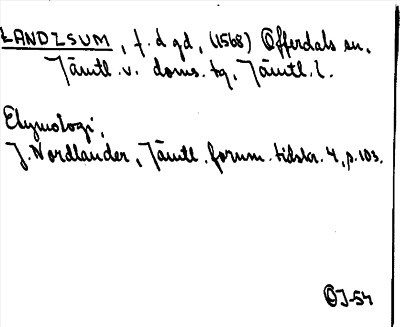 LANDISUM, f.d gd, (1568) Offerdals sn.
Jämtl. v. doms. tg, Jämtl. l.
Etymologi,
J. Nordlander, Jämtl. fornm. tidskr. 4, p. 103.
OJ-54